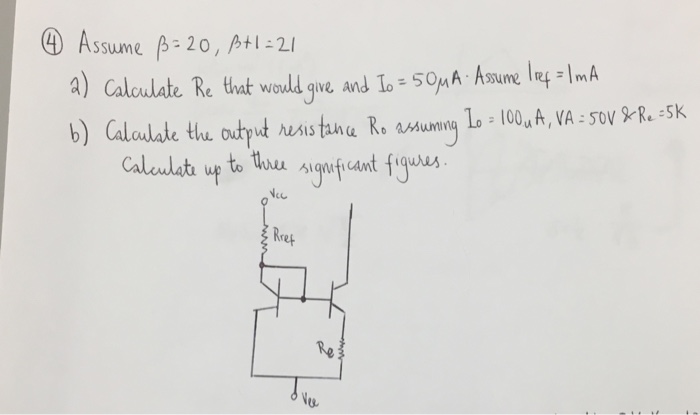 ④ Assume β=20, β+1=21
a) Calculate Re that would give and Io = 50μA. Assume Iref = 1mA
b) Calculate the output resistance Ro assuming Io = 100uA, VA = 50V & Re = 5K
Calculate up to three significant figures.
Vcc
Rref
Re
Vee